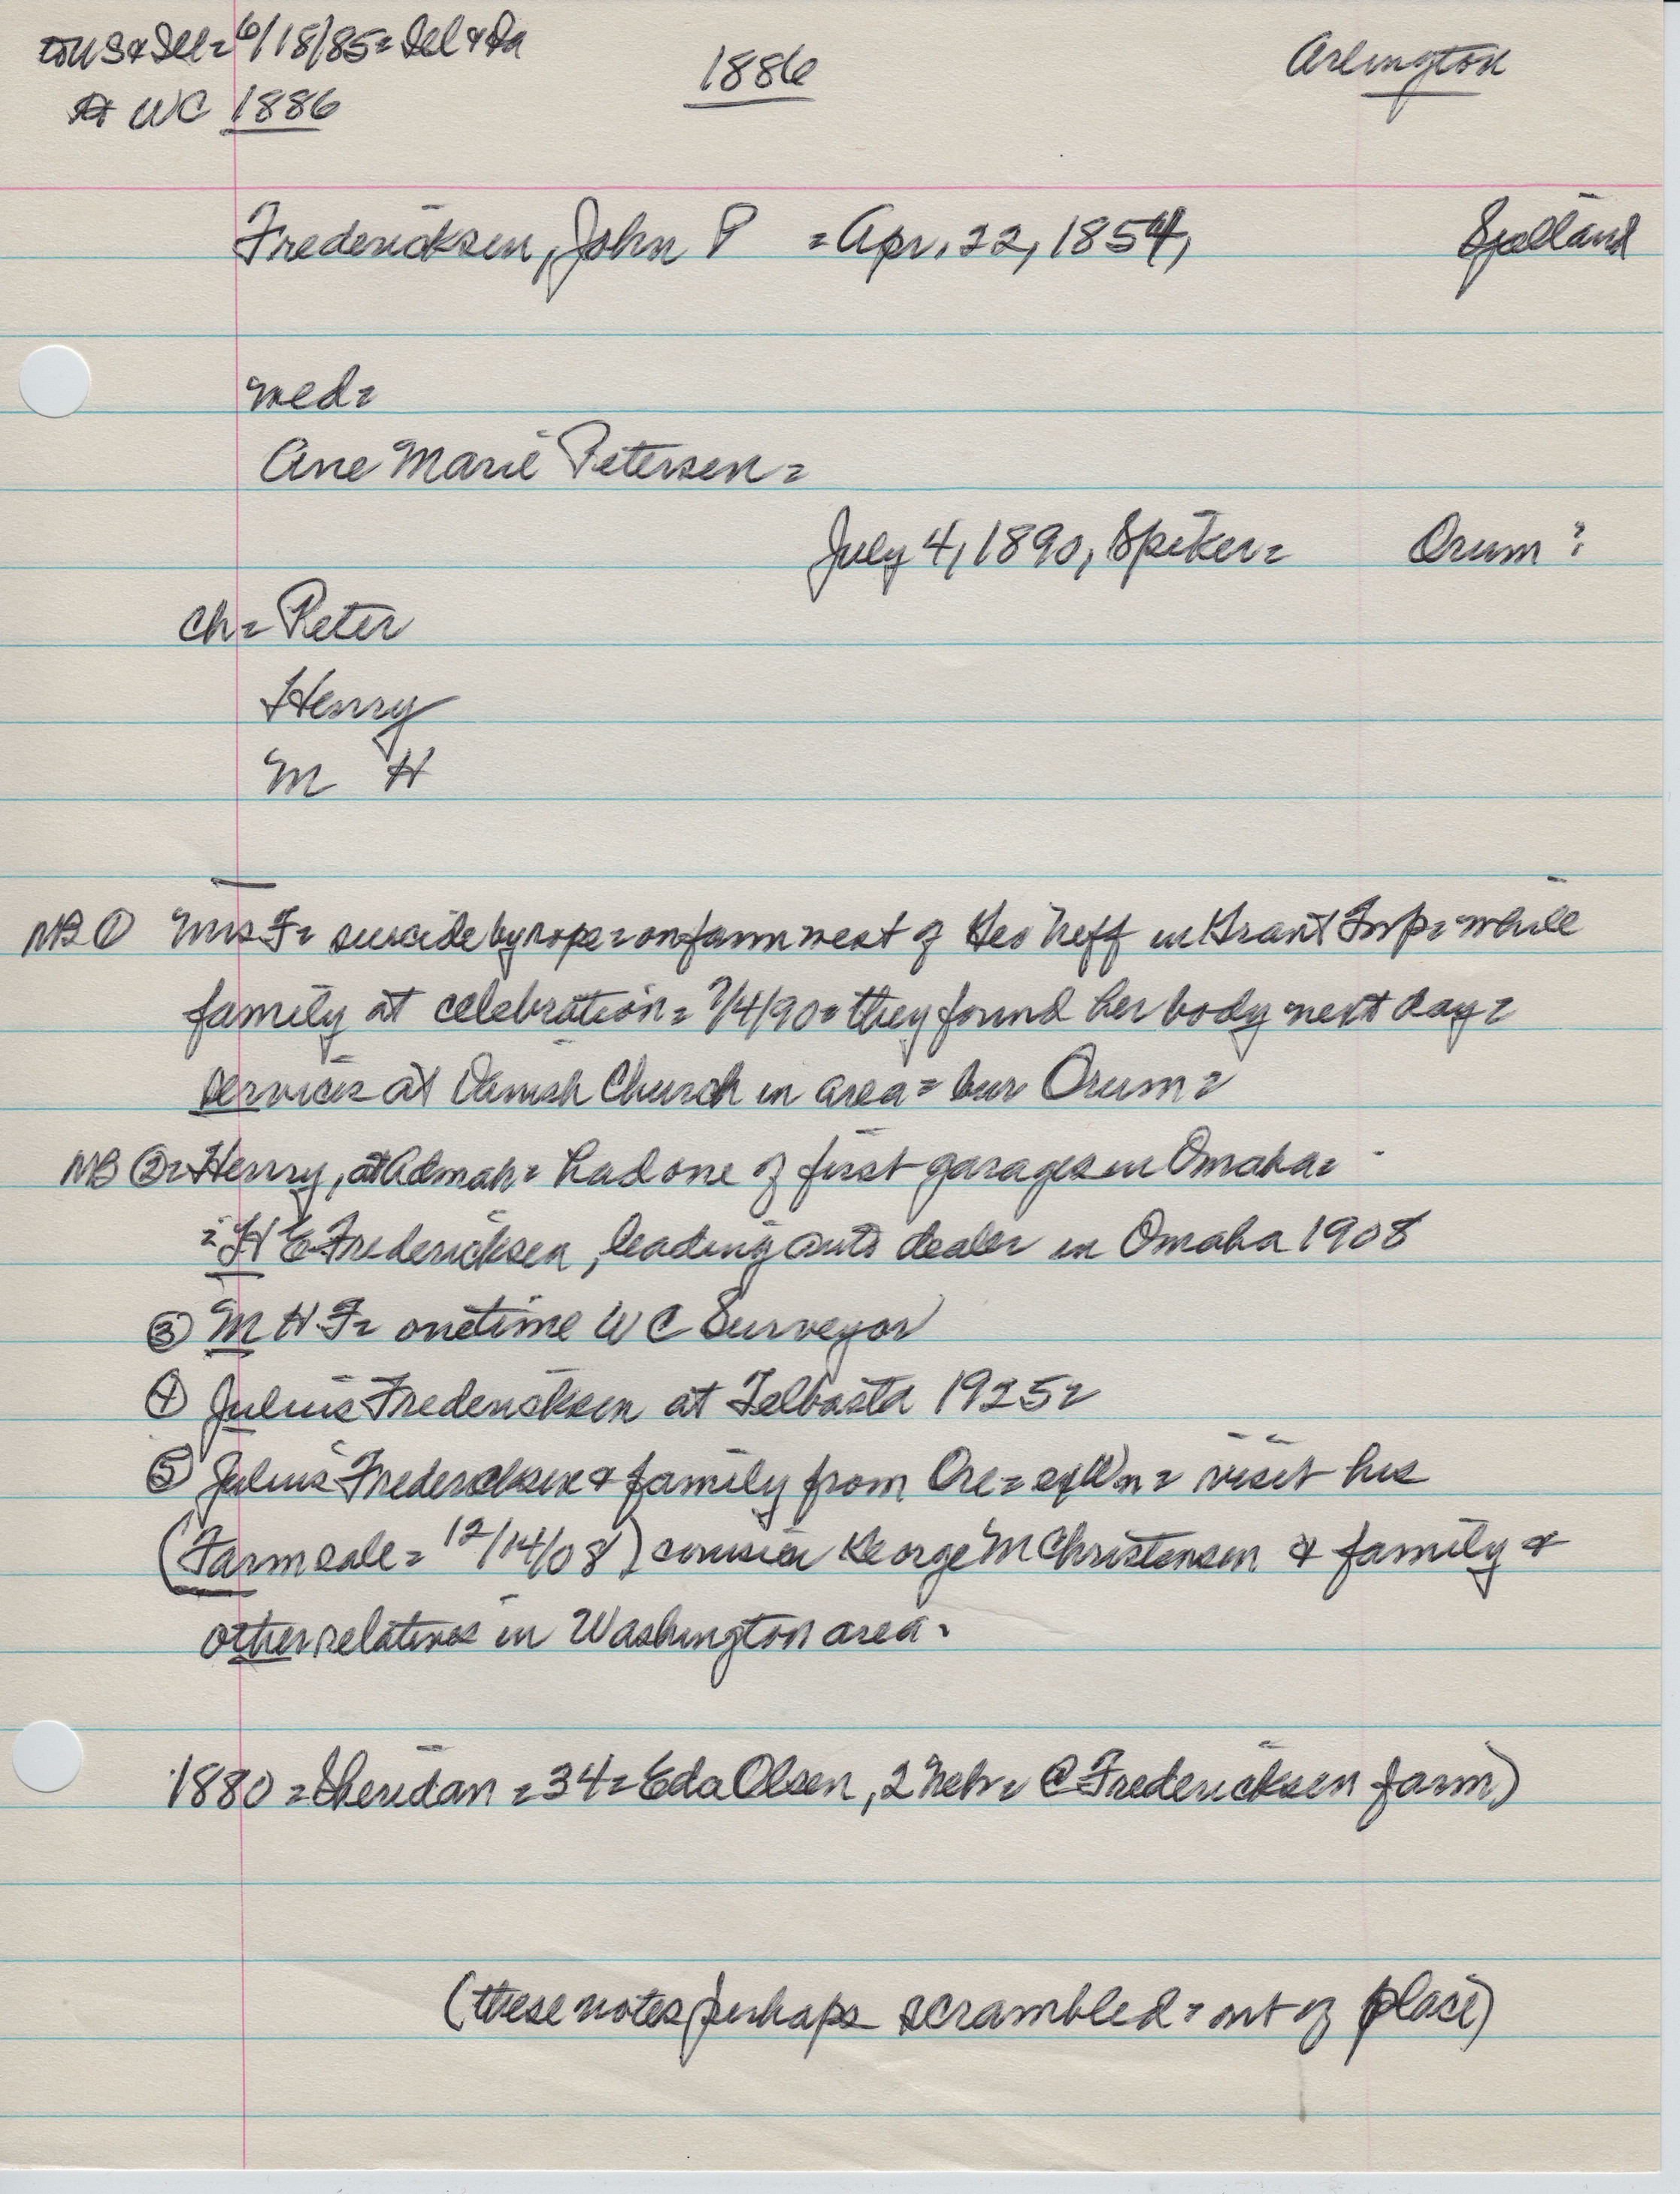 to US & Del = 6/18/85 = Del & Pa
1886
Arlington
WC 1886
Fredericksen, John P = Apr. 22, 1854, Sjelland
med =
Ane Marie Petersen =
July 4, 1890, Spiker = Orum ?
ch = Peter
Henry
M H
NB ① Mrs F = suicide by rope = on farm west of Geo Neff in Grant Twp = while
family at celebration = 7/4/90 = they found her body next day =
services at Danish Church in area = bur Orum =
NB ② = Henry, at Admah = had one of first garages in Omaha =
= H E Fredericksen, leading auto dealer in Omaha 1908
③ M H F = onetime WC Surveyor
④ Julius Fredericksen at Telbasta 1925 =
⑤ Julius Fredericksen & family from Ore = visit his
(Farm sale = 12/14/08) cousin George M Christensen & family &
other relatives in Washington area.
1880 = Sheridan = 34 = Eda Olsen, 2 Neb = @ Fredericksen farm)
(these notes perhaps scrambled = out of place)